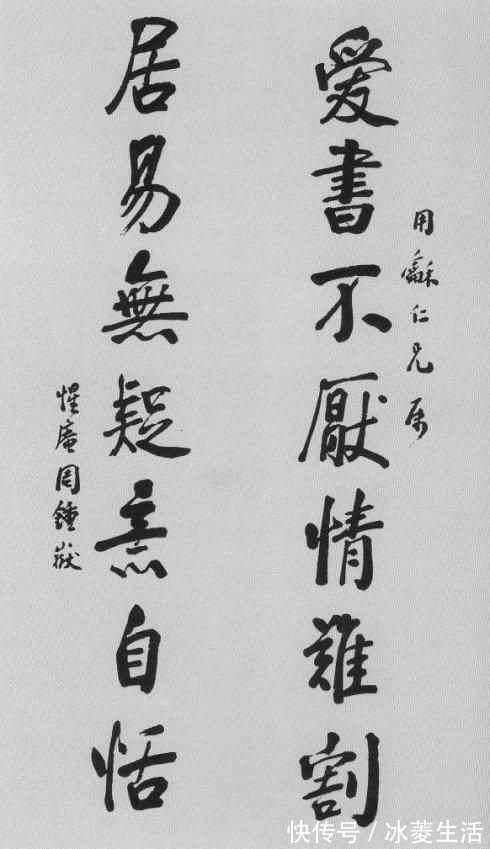 用龢仁兄属
愛書不厭情難割
居易無疑意自恬
惺庵周鍾嶽
快传号 / 冰菱生活